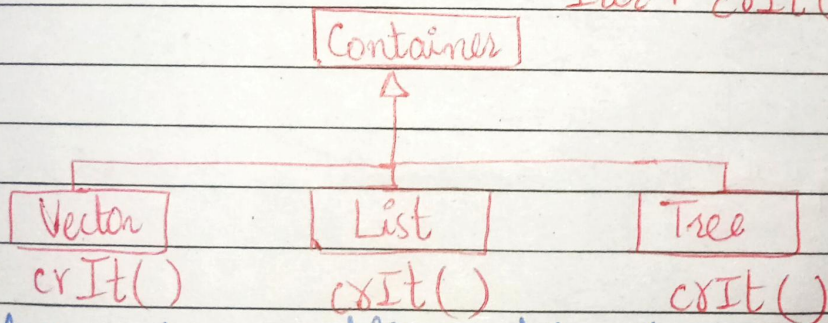 Container
Vector List Tree
crIt() crIt() crIt()